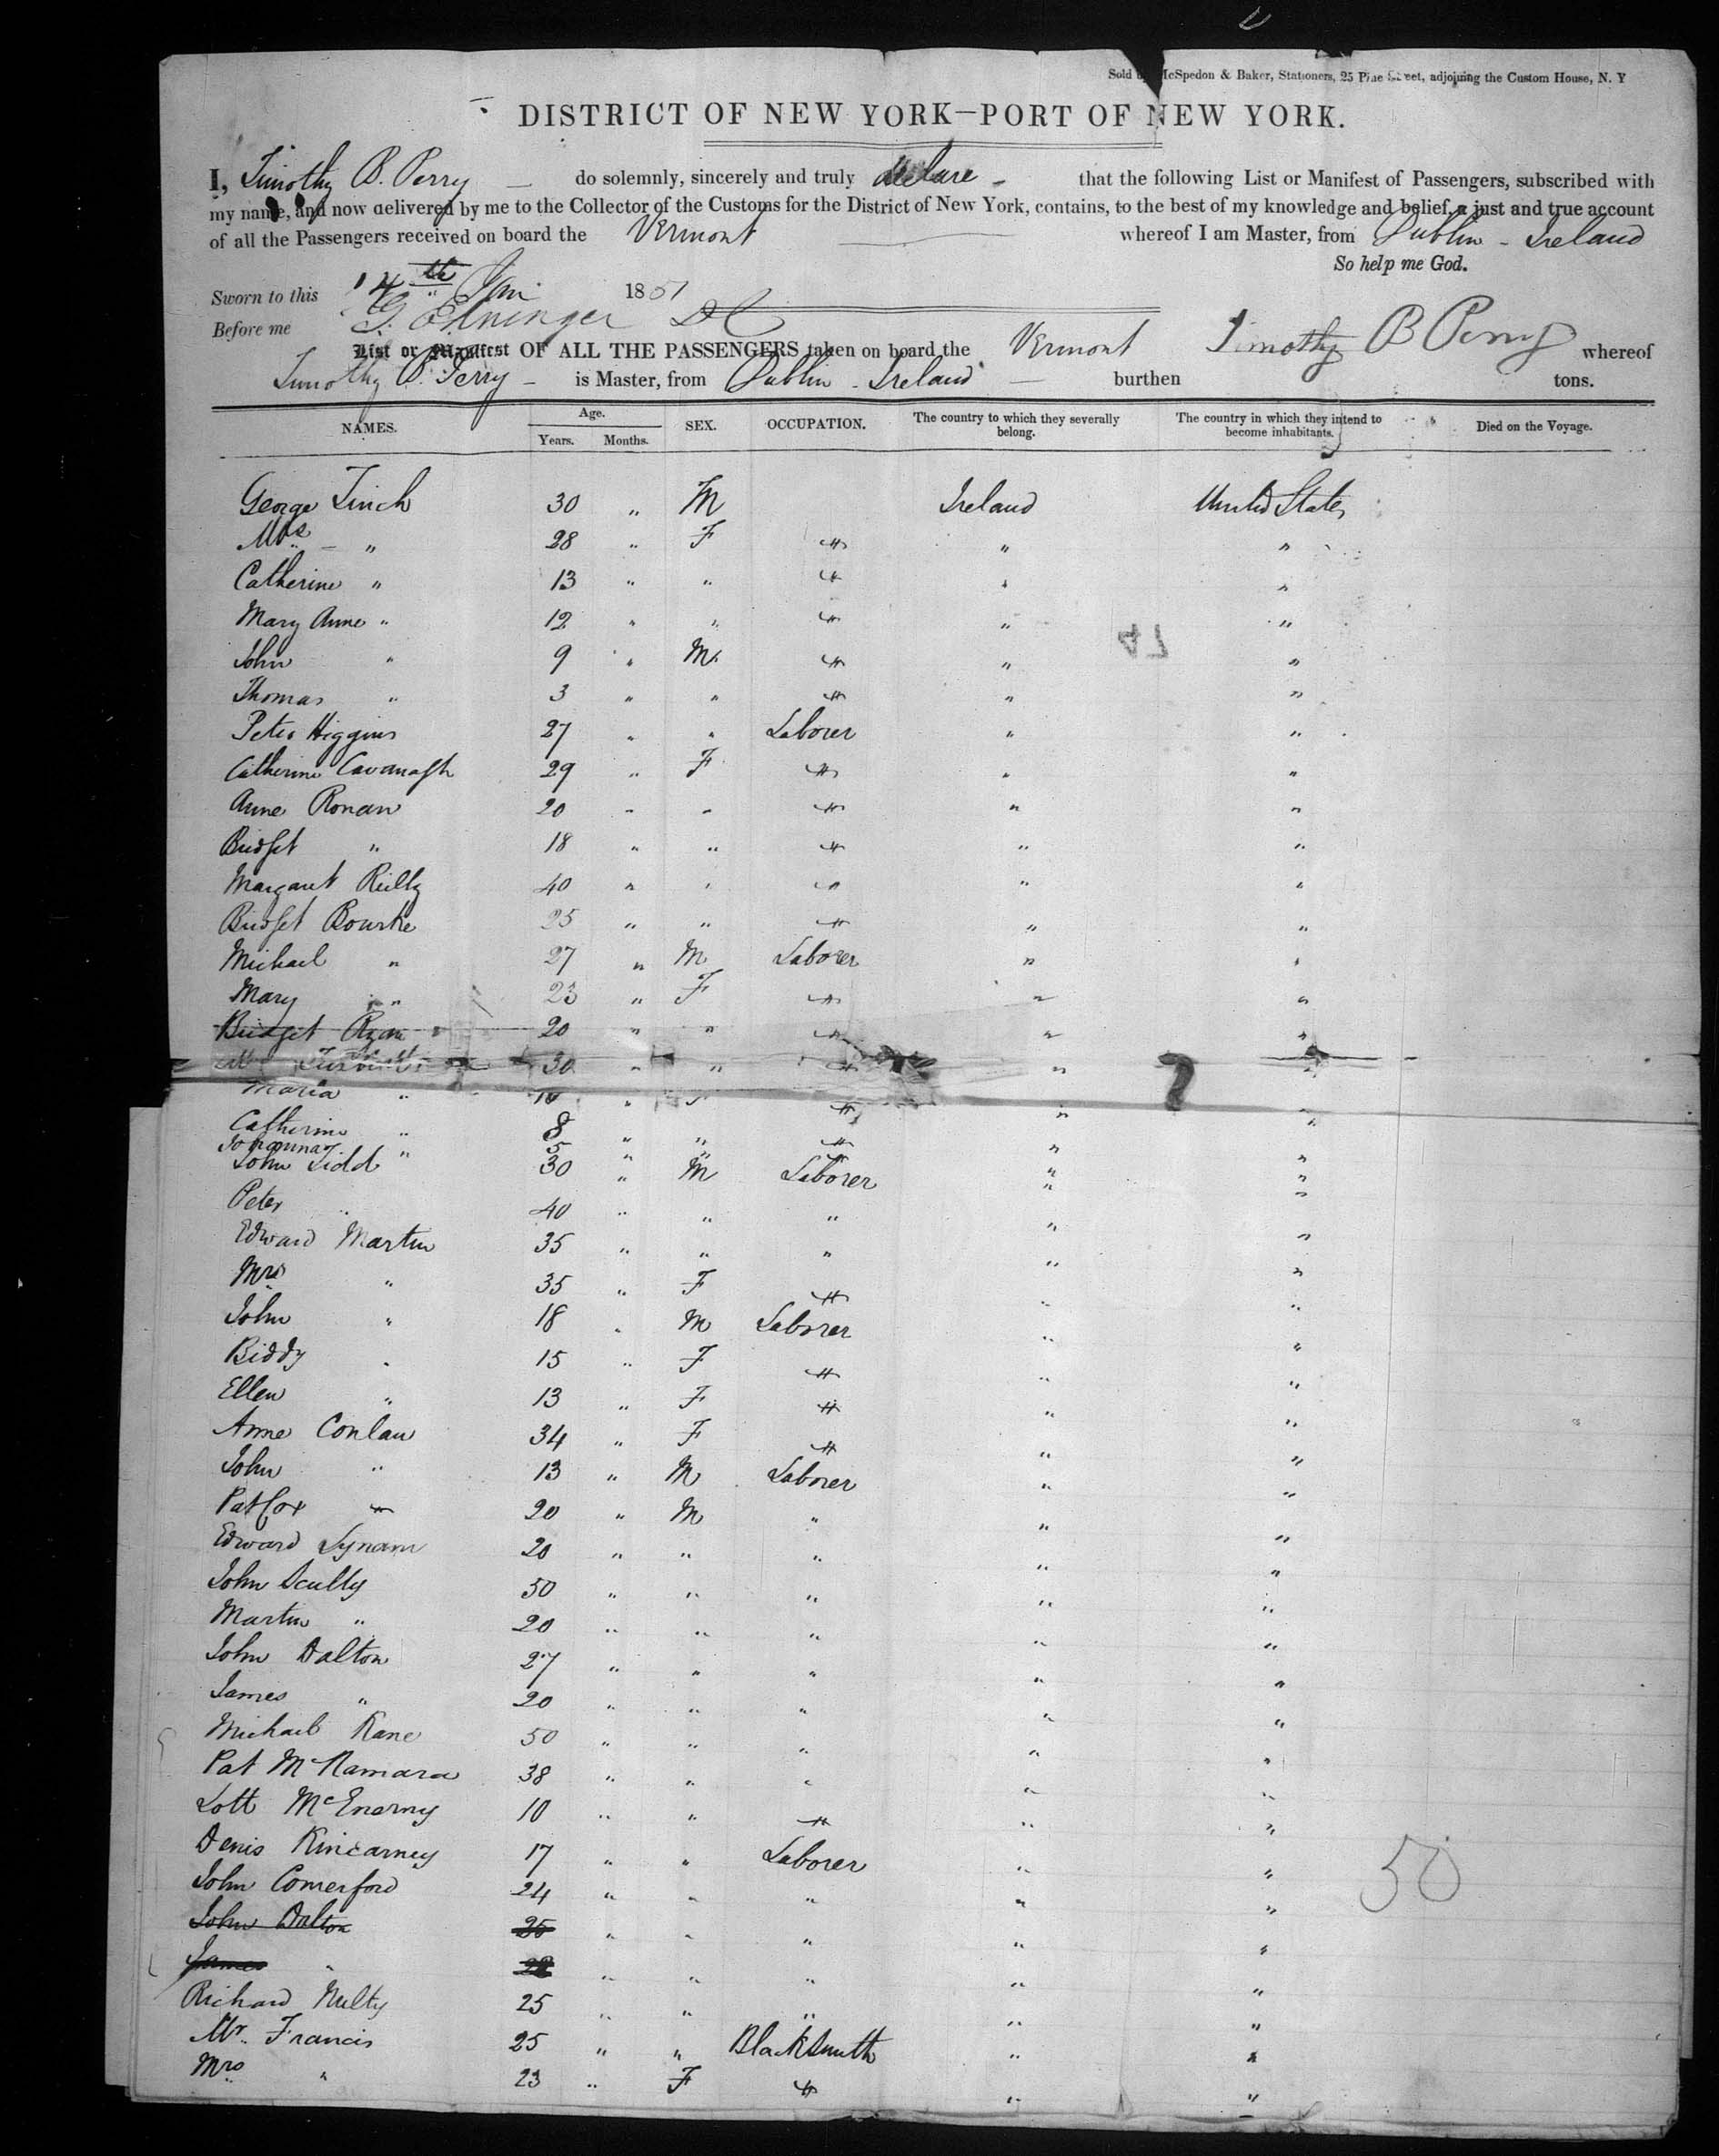 Sold by McSpedon & Baker, Stationers, 25 Pine Street, adjoining the Custom House, N. Y
DISTRICT OF NEW YORK—PORT OF NEW YORK.
I, Timothy B. Perry do solemnly, sincerely and truly declare that the following List or Manifest of Passengers, subscribed with
my name, and now delivered by me to the Collector of the Customs for the District of New York, contains, to the best of my knowledge and belief, a just and true account
of all the Passengers received on board the Vermont whereof I am Master, from Dublin - Ireland
So help me God.
Sworn to this 14th Jan 1851
Before me
Timothy B Perry
List or Manifest OF ALL THE PASSENGERS taken on board the Vermont whereof
Timothy B. Perry - is Master, from Dublin - Ireland burthen tons.
NAMES. Age. Years. Months. SEX. OCCUPATION. The country to which they severally belong. The country in which they intend to become inhabitants. Died on the Voyage.
George Finch 30 " M Ireland United States
Mrs " 28 " F " "
Catherine " 13 " " " "
Mary Anne " 12 " " " "
47
John " 9 " M " "
Thomas " 3 " " " "
Peter Higgins 27 " " Laborer " "
Catherine Cavanagh 29 " F " "
Anne Ronan 20 " " " "
Bridget " 18 " " " "
Margaret Reilly 40 " " " "
Bridget Bourke 25 " " " "
Michael " 27 " M Laborer " "
Mary " 23 " F " "
Bridget Ryan 20 " " " "
30 " " " "
7
Maria " " " "
Catherine " 8 " " " "
Johanna " 5 " " " "
John Lidd 30 " M Laborer " "
Peter " 40 " " " " "
Edward Martin 35 " " " " "
Mrs " 35 " F " "
John " 18 " M Laborer " "
Biddy " 15 " F " "
Ellen " 13 " F " "
Anne Conlan 34 " F " "
John " 13 " M Laborer " "
Pat Cox 20 " M " " "
Edward Lynam 20 " " " " "
John Scully 50 " " " " "
Martin " 20 " " " " "
John Dalton 27 " " " " "
James " 20 " " " " "
Michael Kane 50 " " " " "
Pat McNamara 38 " " " " "
Lott McEnerny 10 " " " "
Denis Kincarney 17 " " Laborer " "
50
John Comerford 24 " " " " "
John Dalton 25 " " " " "
James " 22 " " " " "
Richard Nulty 25 " " " " "
Mr. Francis 25 " " Blacksmith " "
Mrs " 23 " F " "